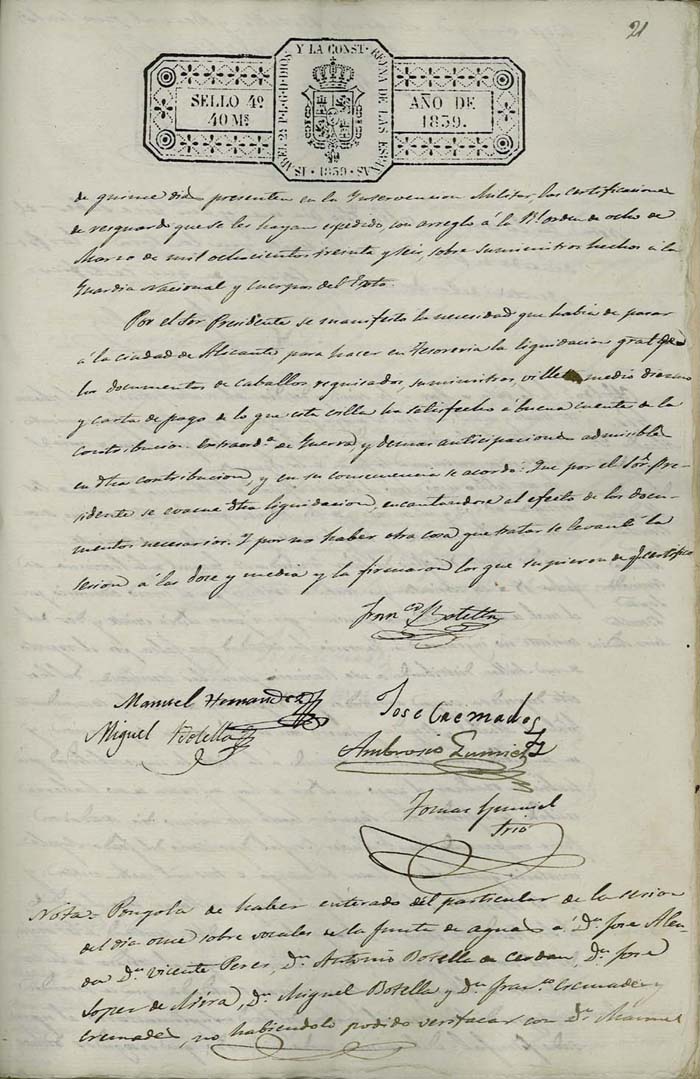 21
SELLO 4º
40 Ms
ISABEL 2ª P.L.G.D.DIOS Y LA CONST. REYNA DE LAS ESPAÑAS · 1839 ·
AÑO DE
1839.
de quince dias presenten en la Intervencion Militar, las certificaciones
de resguardo que se les hayan expedido, con arreglo á la Rl orden de ocho de
Marzo de mil ochocientos treinta y seis, sobre suministros hechos á la
Guardia Nacional y cuerpos del Exto.
Por el Sor Presidente se manifesto la necesidad que habia de pasar
á la ciudad de Alicante para hacer en Tesoreria la liquidacion gral de
los documentos de caballos requisados, suministros, medio diezmo
y carta de pago de lo que esta villa ha satisfecho á buena cuenta de la
contribucion Extraorda de Guerra, y demas anticipaciones admisibles
en dha contribucion, y en su consecuencia se acordó: Que por el Sor Pre-
sidente se evacue dha liquidacion, encantandose al efecto de los docu-
mentos necesarios. Y por no haber otra cosa que tratar se levantó la
sesion á las doce y media y la firmaron los que supieron de q. certifico
Franco Botella
Manuel Hernandez
Jose Cremades
Miguel Botella
Ambrosio
Tomas
Srio
Nota = Pongola de haber enterado del particular de la sesion
del dia once sobre vocales de la junta de aguas á Dn Jose Alen-
da Dn Vicente Peres, Dn Antonio Botella de Cerdan, Dn Jose
Lopez de Mira, Dn Miguel Botella y Dn Franco Cremades y
Cremades, no habiendolo podido verificar con Dn Manuel